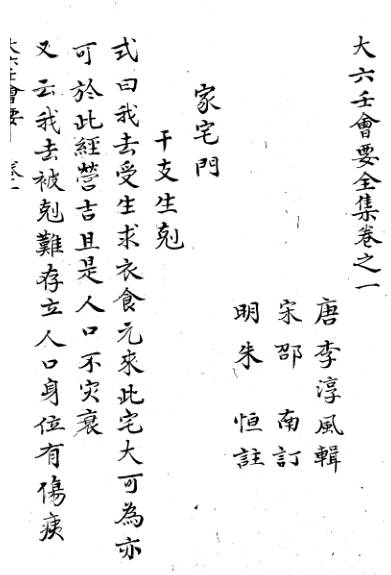 大六壬會要全集卷之一
唐李淳風輯
宋邵南訂
明朱恒註
家宅門
干支生剋
式曰我去受生求衣食元來此宅大可為亦
可於此經營吉且是人口不灾衰
又云我去被剋難存立人口身位有傷痍
大六壬會要 卷一